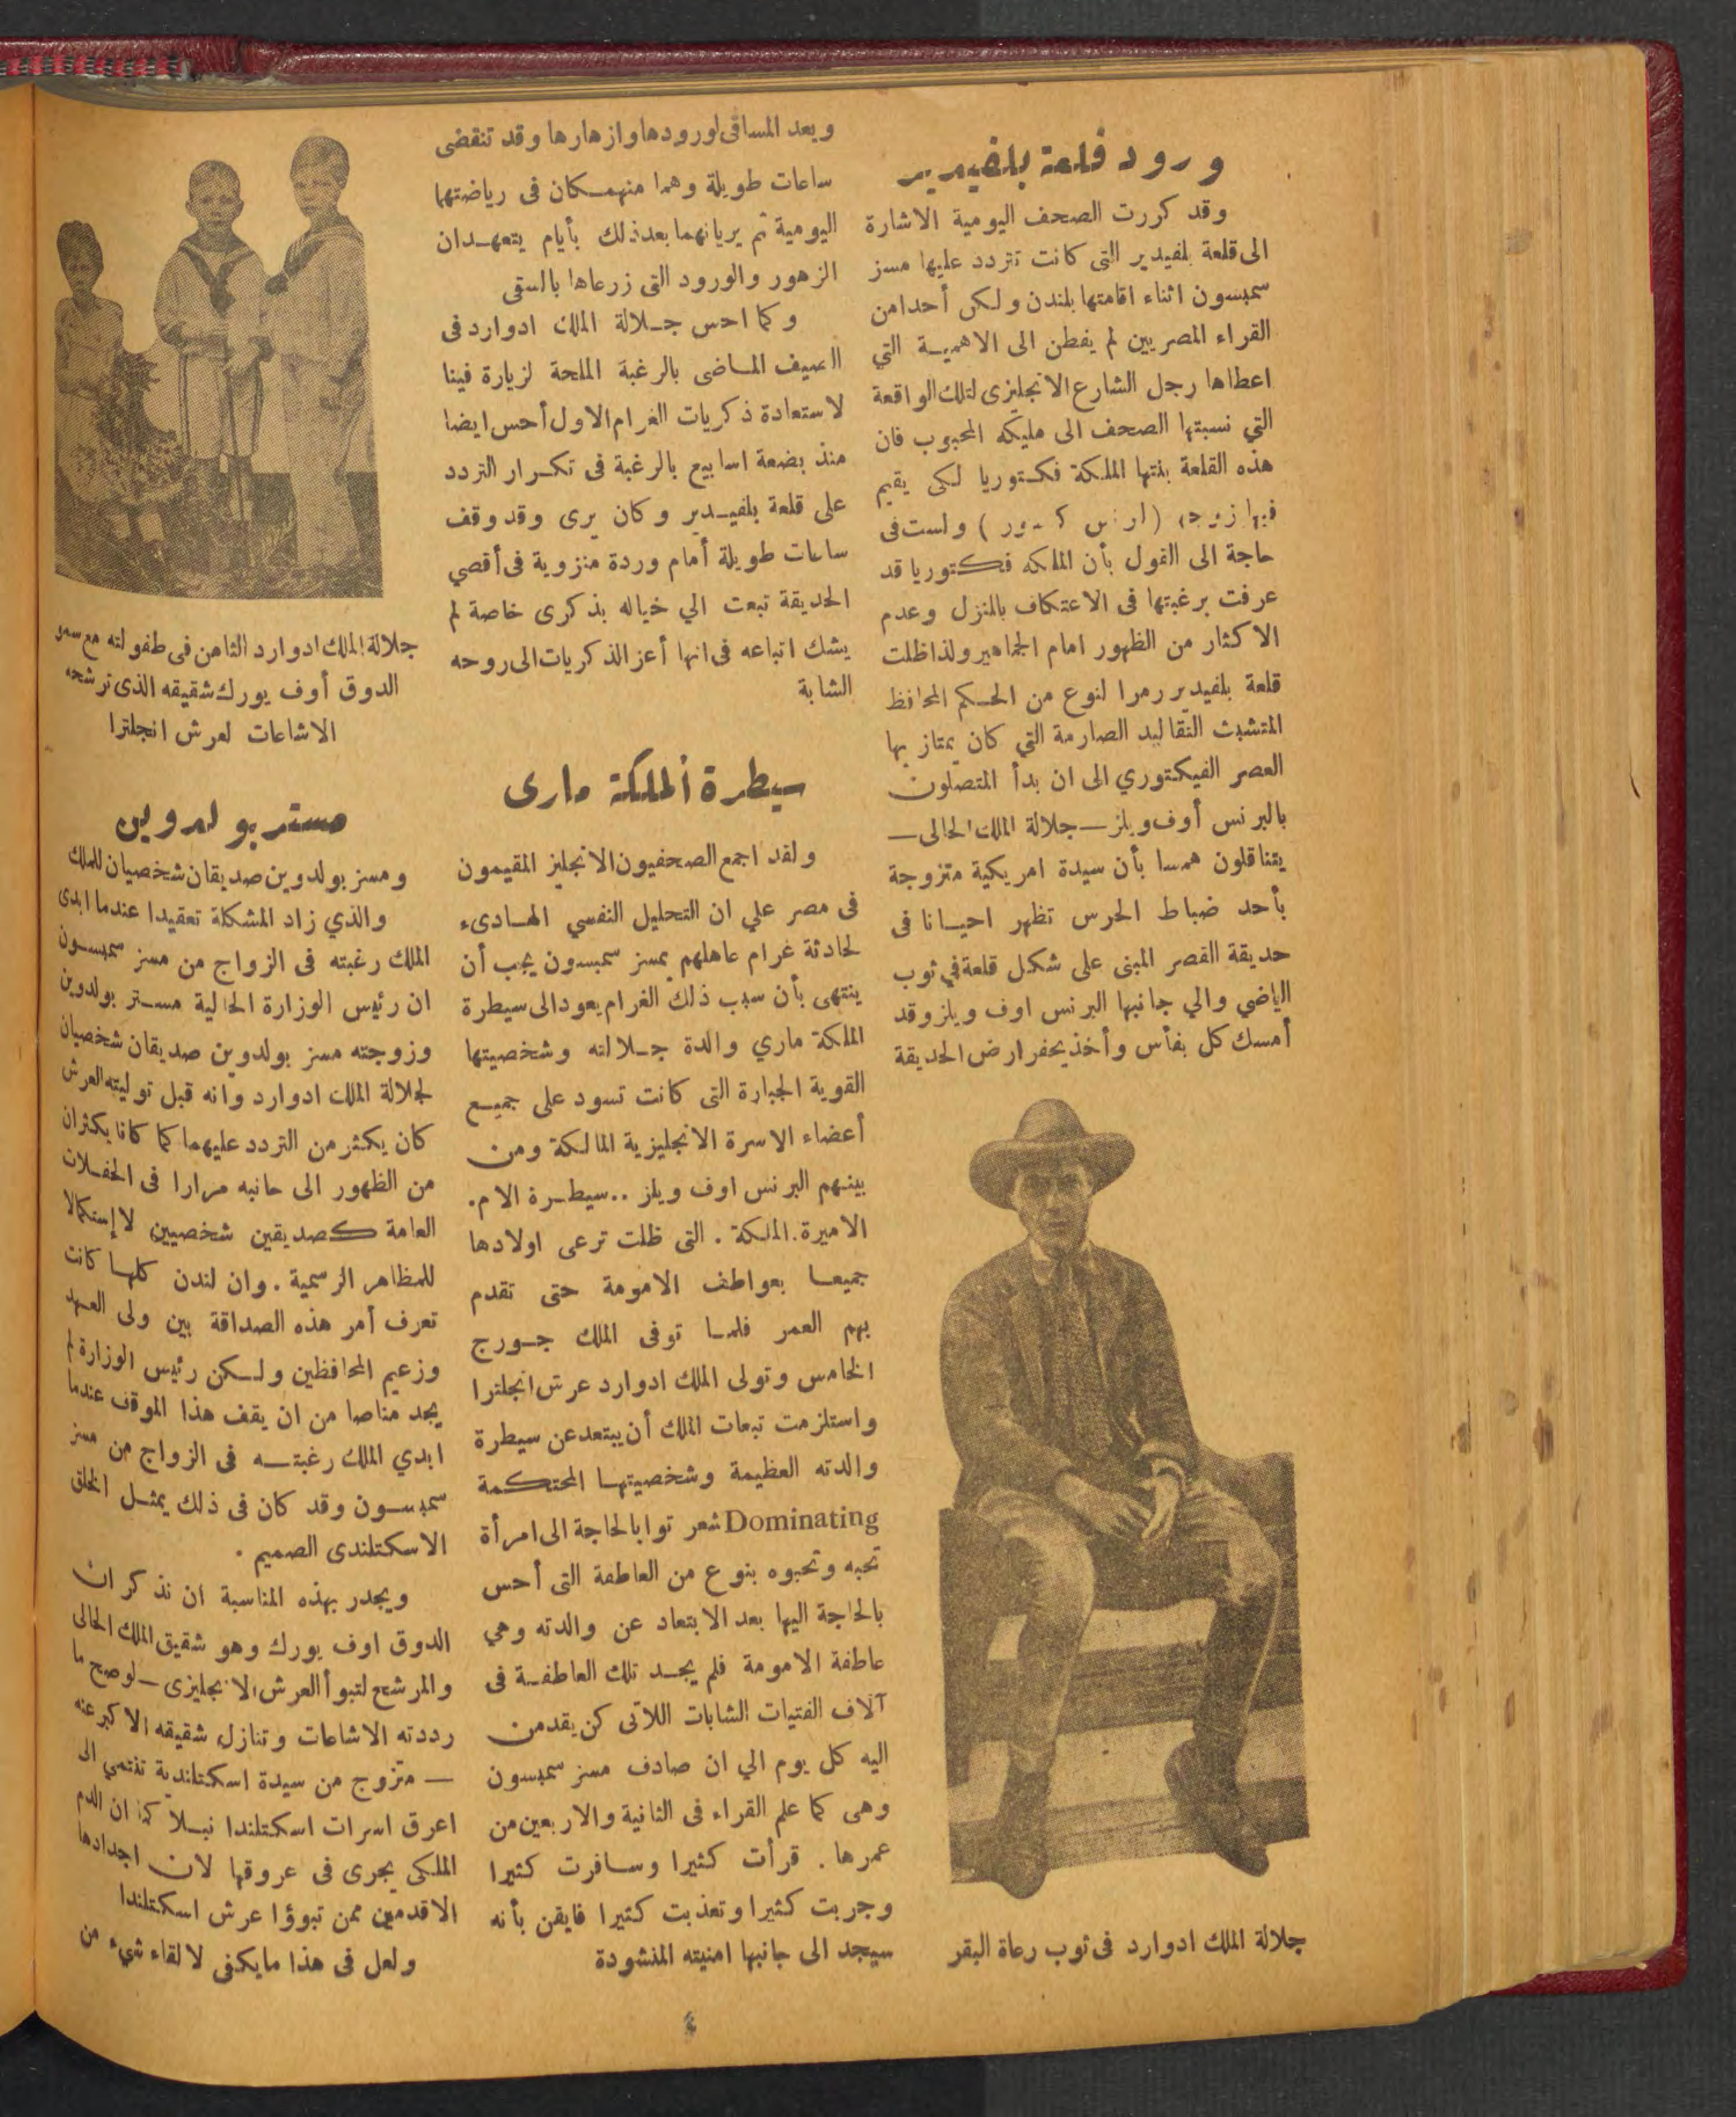 ورود قلعة بلفيدير
وقد كررت الصحف اليومية الاشارة
الى قلعة بلفيدير التى كانت تتردد عليها مسز
سمبسون اثناء اقامتها بلندن ولكن أحدا من
القراء المصريين لم يفطن الى الاهمية التي
اعطاها رجل الشارع الانجليزى لتلك الواقعة
التي نسبتها الصحف الى مليكه المحبوب فان
هذه القلعة بنتها الملكة فكتوريا لكى يقيم
فيها زوجها ( ) ولست فى
حاجة الى القول بأن الملكه فكتوريا قد
عرفت برغبتها فى الاعتكاف بالمنزل وعدم
الاكثار من الظهور امام الجماهير ولذا ظلت
قلعة بلفيدير رمزا لنوع من الحكم المحافظ
المتشبث التقاليد الصارمة التي كان يمتاز بها
العصر الفيكتوري الى ان بدأ المتصلون
بالبرنس أوف ويلز — جلالة الملك الحالى —
يتناقلون همسا بأن سيدة امريكية متزوجة
بأحد ضباط الحرس تظهر احيانا فى
حديقة القصر المبنى على شكل قلعة في ثوب
الرياضي والي جانبها البرنس اوف ويلز وقد
أمسك كل بفأس وأخذ يحفر ارض الحديقة
جلالة الملك ادوارد فى ثوب رعاة البقر
ويعد المساقى لورودها وازهارها وقد تنقضى
ساعات طويلة وهما منهمكان فى رياضتهما
اليومية ثم يريانهما بعد ذلك بأيام يتعهدان
الزهور والورود التى زرعاها بالسقى
وكما احس جلالة الملك ادوارد فى
الصيف الماضى بالرغبة الملحة لزيارة فينا
لاستعادة ذكريات الغرام الاول أحس ايضا
منذ بضعة اسابيع بالرغبة فى تكرار التردد
على قلعة بلفيدير وكان يرى وقد وقف
ساعات طويلة أمام وردة منزوية فى أقصي
الحديقة تبعث الي خياله بذكرى خاصة لم
يشك اتباعه فى انها أعز الذكريات الى روحه
الشابة
سيطرة الملكة مارى
ولقد اجمع الصحفيون الانجليز المقيمون
فى مصر علي ان التحليل النفسي الهادىء
لحادثة غرام عاهلهم بمسز سمبسون يجب أن
ينتهى بأن سبب ذلك الغرام يعود الى سيطرة
الملكة ماري والدة جلالته وشخصيتها
القوية الجبارة التى كانت تسود على جميع
أعضاء الاسرة الانجليزية المالكة ومن
بينهم البرنس اوف ويلز .. سيطرة الام.
الاميرة. الملكة . التى ظلت ترعى اولادها
جميعا بعواطف الامومة حتى تقدم
بهم العمر فلما توفى الملك جورج
الخامس وتولى الملك ادوارد عرش انجلترا
واستلزمت تبعات الملك أن يبتعد عن سيطرة
والدته العظيمة وشخصيتها المحتكمة
Dominating شعر توا بالحاجة الى امرأة
تحبه وتحبوه بنوع من العاطفة التى أحس
بالحاجة اليها بعد الابتعاد عن والدته وهي
عاطفة الامومة فلم يجد تلك العاطفة فى
آلاف الفتيات الشابات اللاتى كن يقدمن
اليه كل يوم الي ان صادف مسز سمبسون
وهى كما علم القراء فى الثانية والاربعين من
عمرها . قرأت كثيرا وسافرت كثيرا
وجربت كثيرا وتعذبت كثيرا فايقن بأنه
سيجد الى جانبها امنيته المنشودة
جلالة الملك ادوارد الثامن فى طفولته مع سمو
الدوق أوف يورك شقيقه الذى ترشحه
الاشاعات لعرش انجلترا
مستر بولدوين
ومسز بولدوين صديقان شخصيان للملك
والذي زاد المشكلة تعقيدا عندما ابدى
الملك رغبته فى الزواج من مسز سمبسون
ان رئيس الوزارة الحالية مستر بولدوين
وزوجته مسز بولدوين صديقان شخصيان
لجلالة الملك ادوارد وانه قبل توليته العرش
كان يكثر من التردد عليهما كما كانا يكثران
من الظهور الى جانبه مرارا فى الحفلات
العامة كصديقين شخصيين لا إستكمالا
للمظاهر الرسمية . وان لندن كلها كانت
تعرف أمر هذه الصداقة بين ولى العهد
وزعيم المحافظين ولكن رئيس الوزارة لم
يجد مناصا من ان يقف هذا الموقف عندما
ابدي الملك رغبته فى الزواج من مسز
سمبسون وقد كان فى ذلك يمثل الخلق
الاسكتلندى الصميم .
ويجدر بهذه المناسبة ان نذكر ان
الدوق اوف يورك وهو شقيق الملك الحالى
والمرشح لتبوأ العرش الانجليزى — لو صح ما
رددته الاشاعات وتنازل شقيقه الاكبر عنه
— متزوج من سيدة اسكتلندية تنتمي الى
اعرق اسرات اسكتلندا نبلا كما ان الدم
الملكى يجرى فى عروقها لان اجدادها
الاقدمين ممن تبوؤا عرش اسكتلندا
ولعل فى هذا ما يكفى لالقاء شيء من
٤